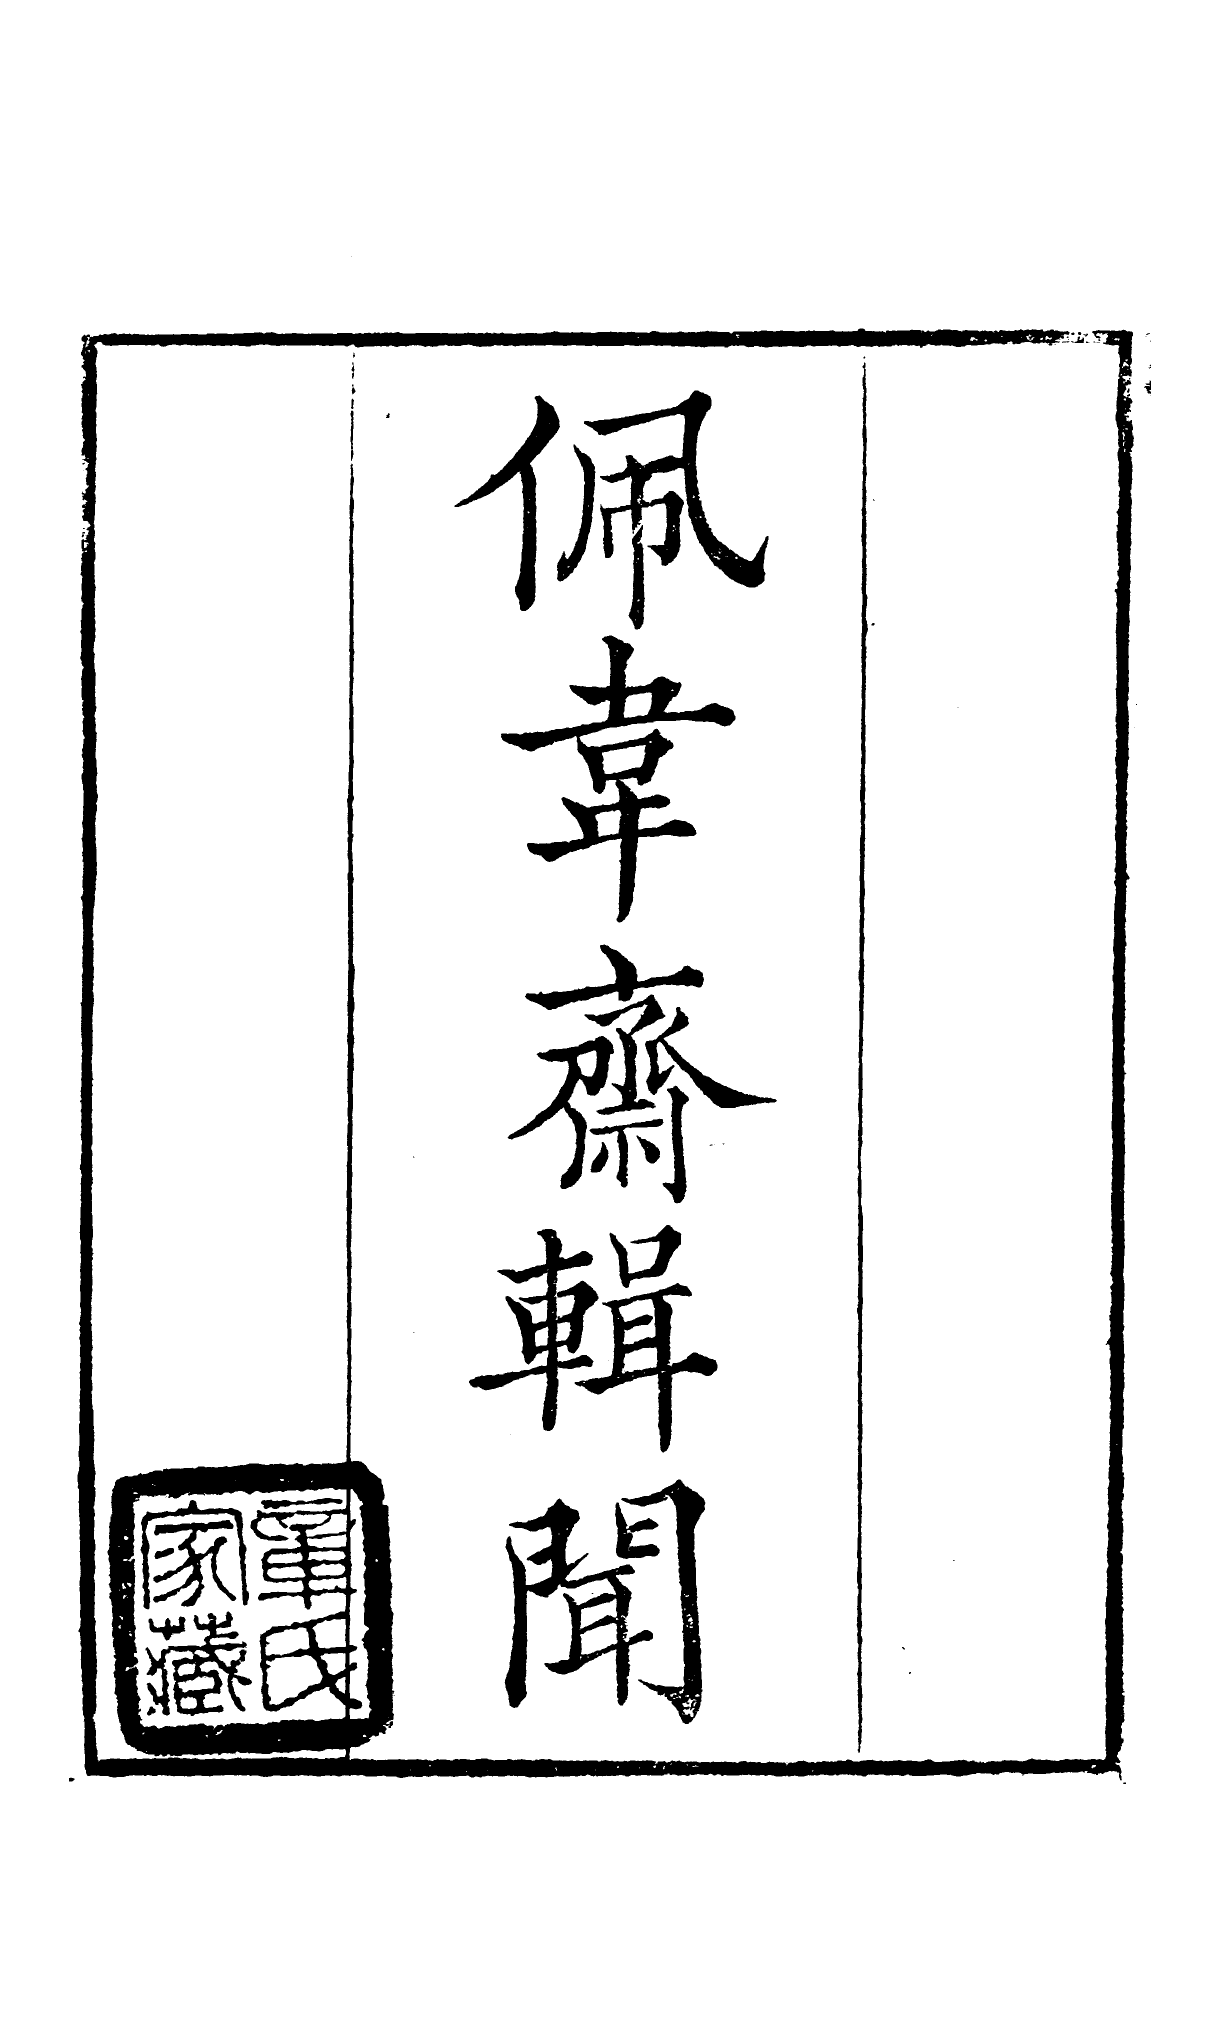 佩韋齋輯聞
章氏
家藏